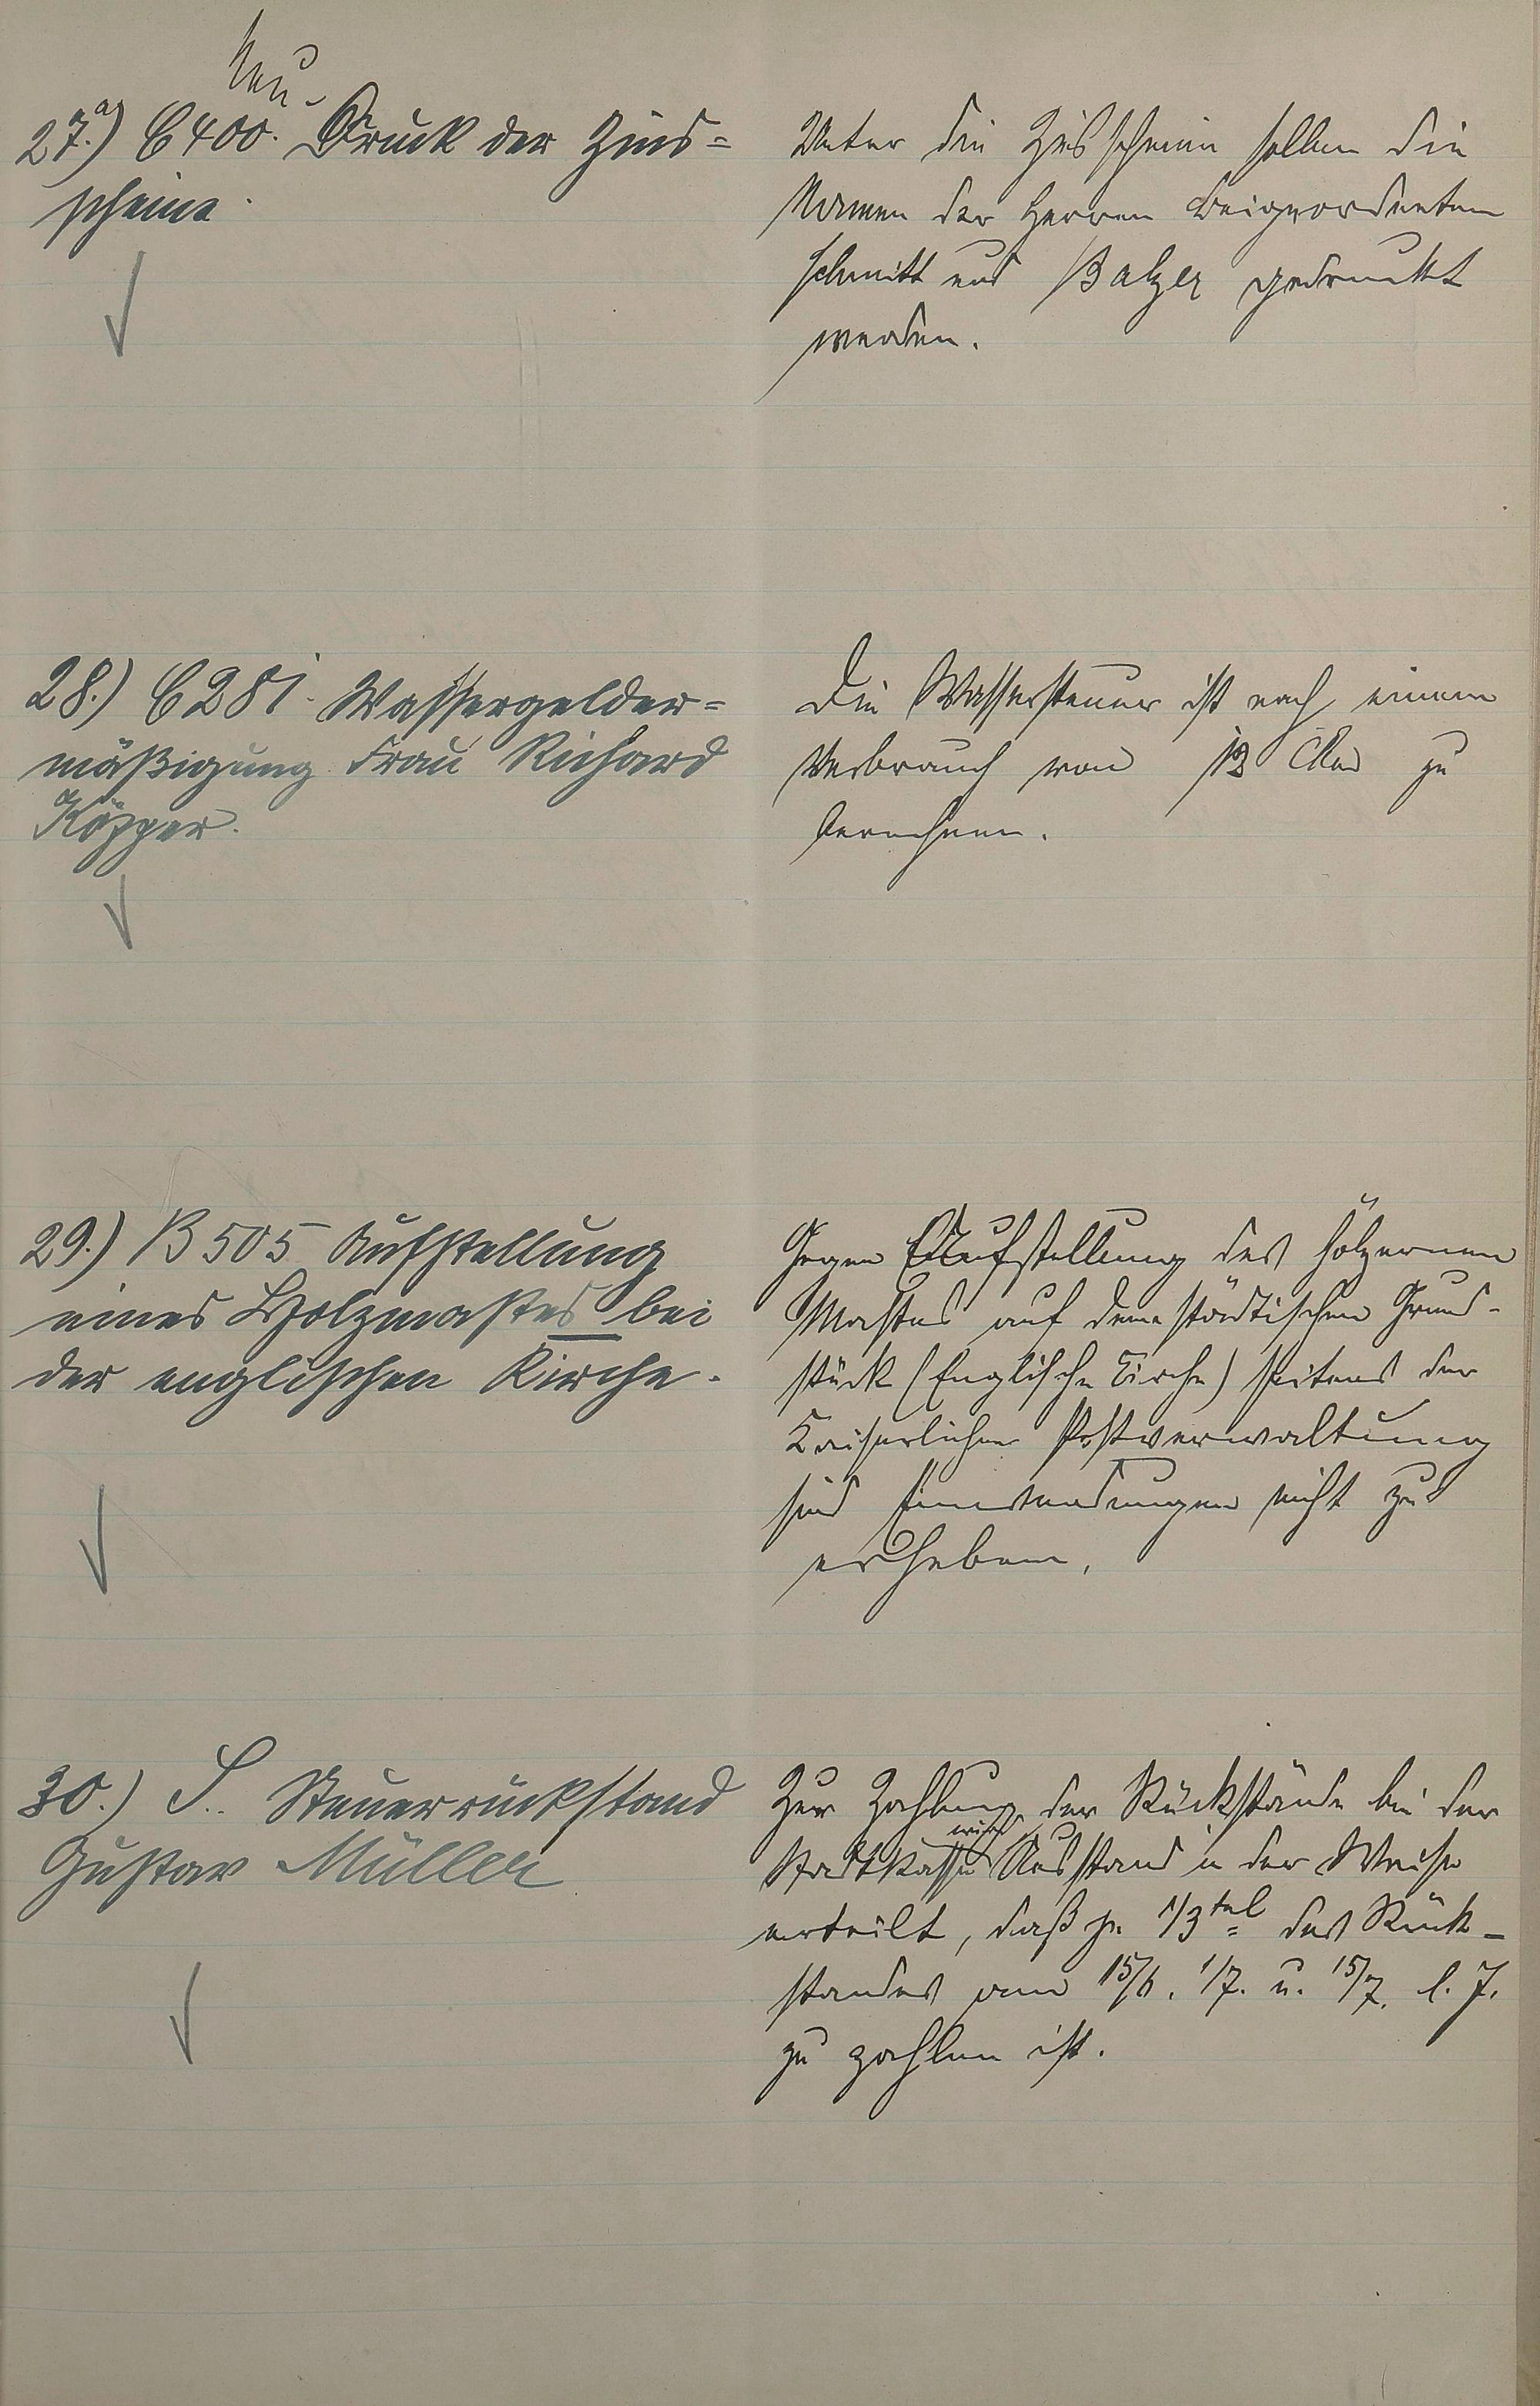 Neu-
27.a) C 400. Druck der Zins=
scheine.
Unter die Zinsscheine sollen die
Namen der Herren Beigeordneten
Schmitt und Balzer gedruckt
werden.
28.) C 281. Wassergelder=
mäßigung Frau Richard
Die Wassersteuer ist nach einem
Verbrauch von zu
berechnen.
29.) B 505 Aufstellung
eines Holzmastes bei
der englischen Kirche.
Gegen Aufstellung des hölzernen
Mastes auf dem städtischen Grund-
stück (Englische Kirche) seitens der
Kaiserlichen Postverwaltung
sind Einwendungen nicht zu
erheben.
30.) S. Steuerrückstand
Gustav Müller
Zur Zahlung der Rückstände bei der
Stadtkasse wird Ausstand in der Weise
erteilt, daß je 1/3tel des Rück-
standes am 15/6. 1/7. u. 15/7. l. J.
zu zahlen ist.